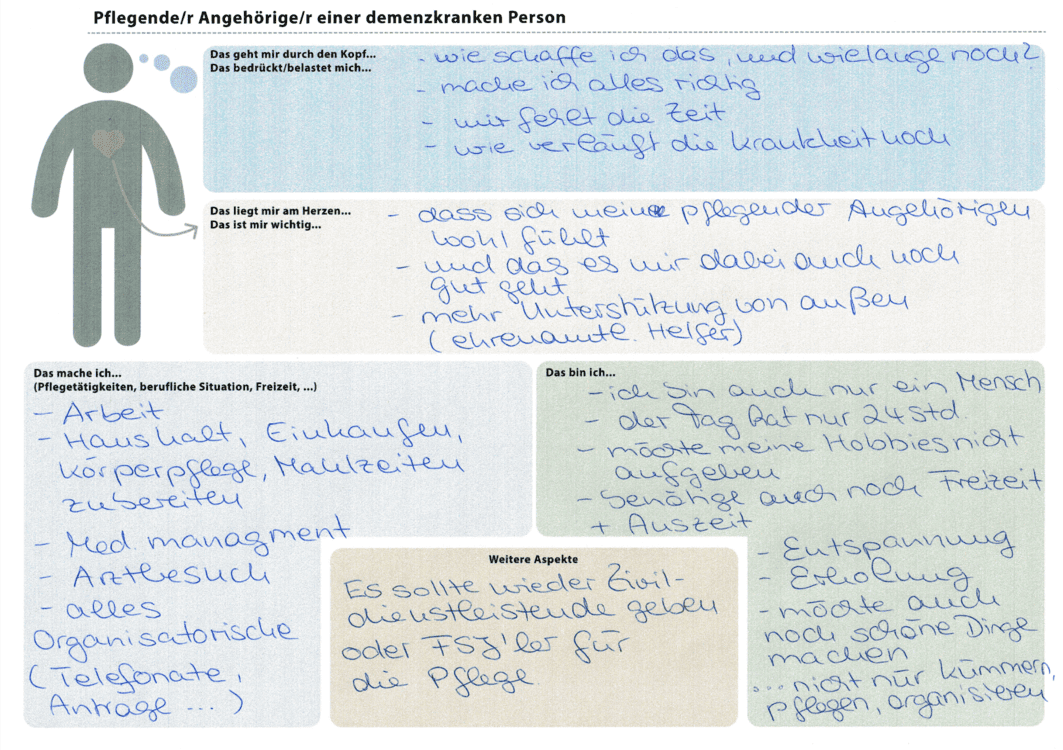 Pflegende/r Angehörige/r einer demenzkranken Person
Das geht mir durch den Kopf...
Das bedrückt/belastet mich...
- wie schaffe ich das, und wielange noch?
- mache ich alles richtig
- mir fehlt die Zeit
- wie verläuft die Krankheit noch
Das liegt mir am Herzen...
Das ist mir wichtig...
- dass sich meine pflegender Angehörigen
wohl fühlt
- und das es mir dabei auch noch
gut geht
- mehr Unterstützung von außen
(ehrenamtl. Helfer)
Das mache ich...
(Pflegetätigkeiten, berufliche Situation, Freizeit, ...)
- Arbeit
- Haushalt, Einkaufen,
Körperpflege, Mahlzeiten
zubereiten
- Med. managment
- Arztbesuch
- alles
Organisatorische
(Telefonate,
Anträge ... )
Das bin ich...
- ich bin auch nur ein Mensch
- der Tag hat nur 24 Std.
- möchte meine Hobbies nicht
aufgeben
- benötige auch noch Freizeit
+ Auszeit
- Entspannung
- Erholung
- möchte auch
noch schöne Dinge
machen
... nicht nur kümmern,
pflegen, organisieren
Weitere Aspekte
Es sollte wieder Zivil-
dienstleistende geben
oder FSJ'ler für
die Pflege